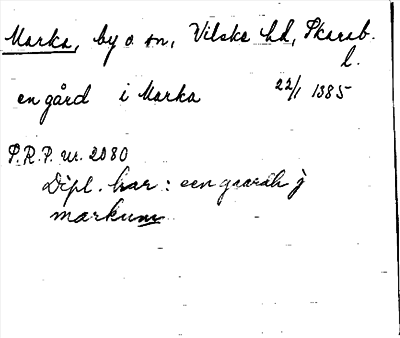 Marka, by o sn, Vilske hd, Skarab.
l.
en gård i Marka 22/1 1385
P.R.P. nr. 2080
Dipl. har: een gaardh j
markum